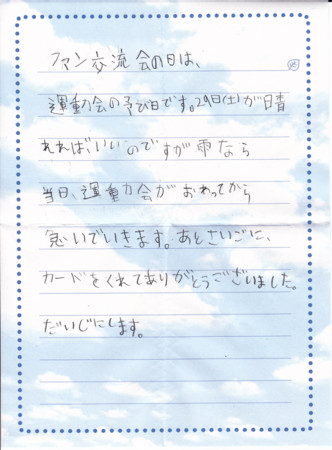 ファン交流会の日は、
運動会の予び日です。29日(土)が晴
れれば、いいのですが雨なら
当日、運動会がおわってから
急いでいきます。あとさいごに、
カードをくれてありがとうございました。
だいじにします。